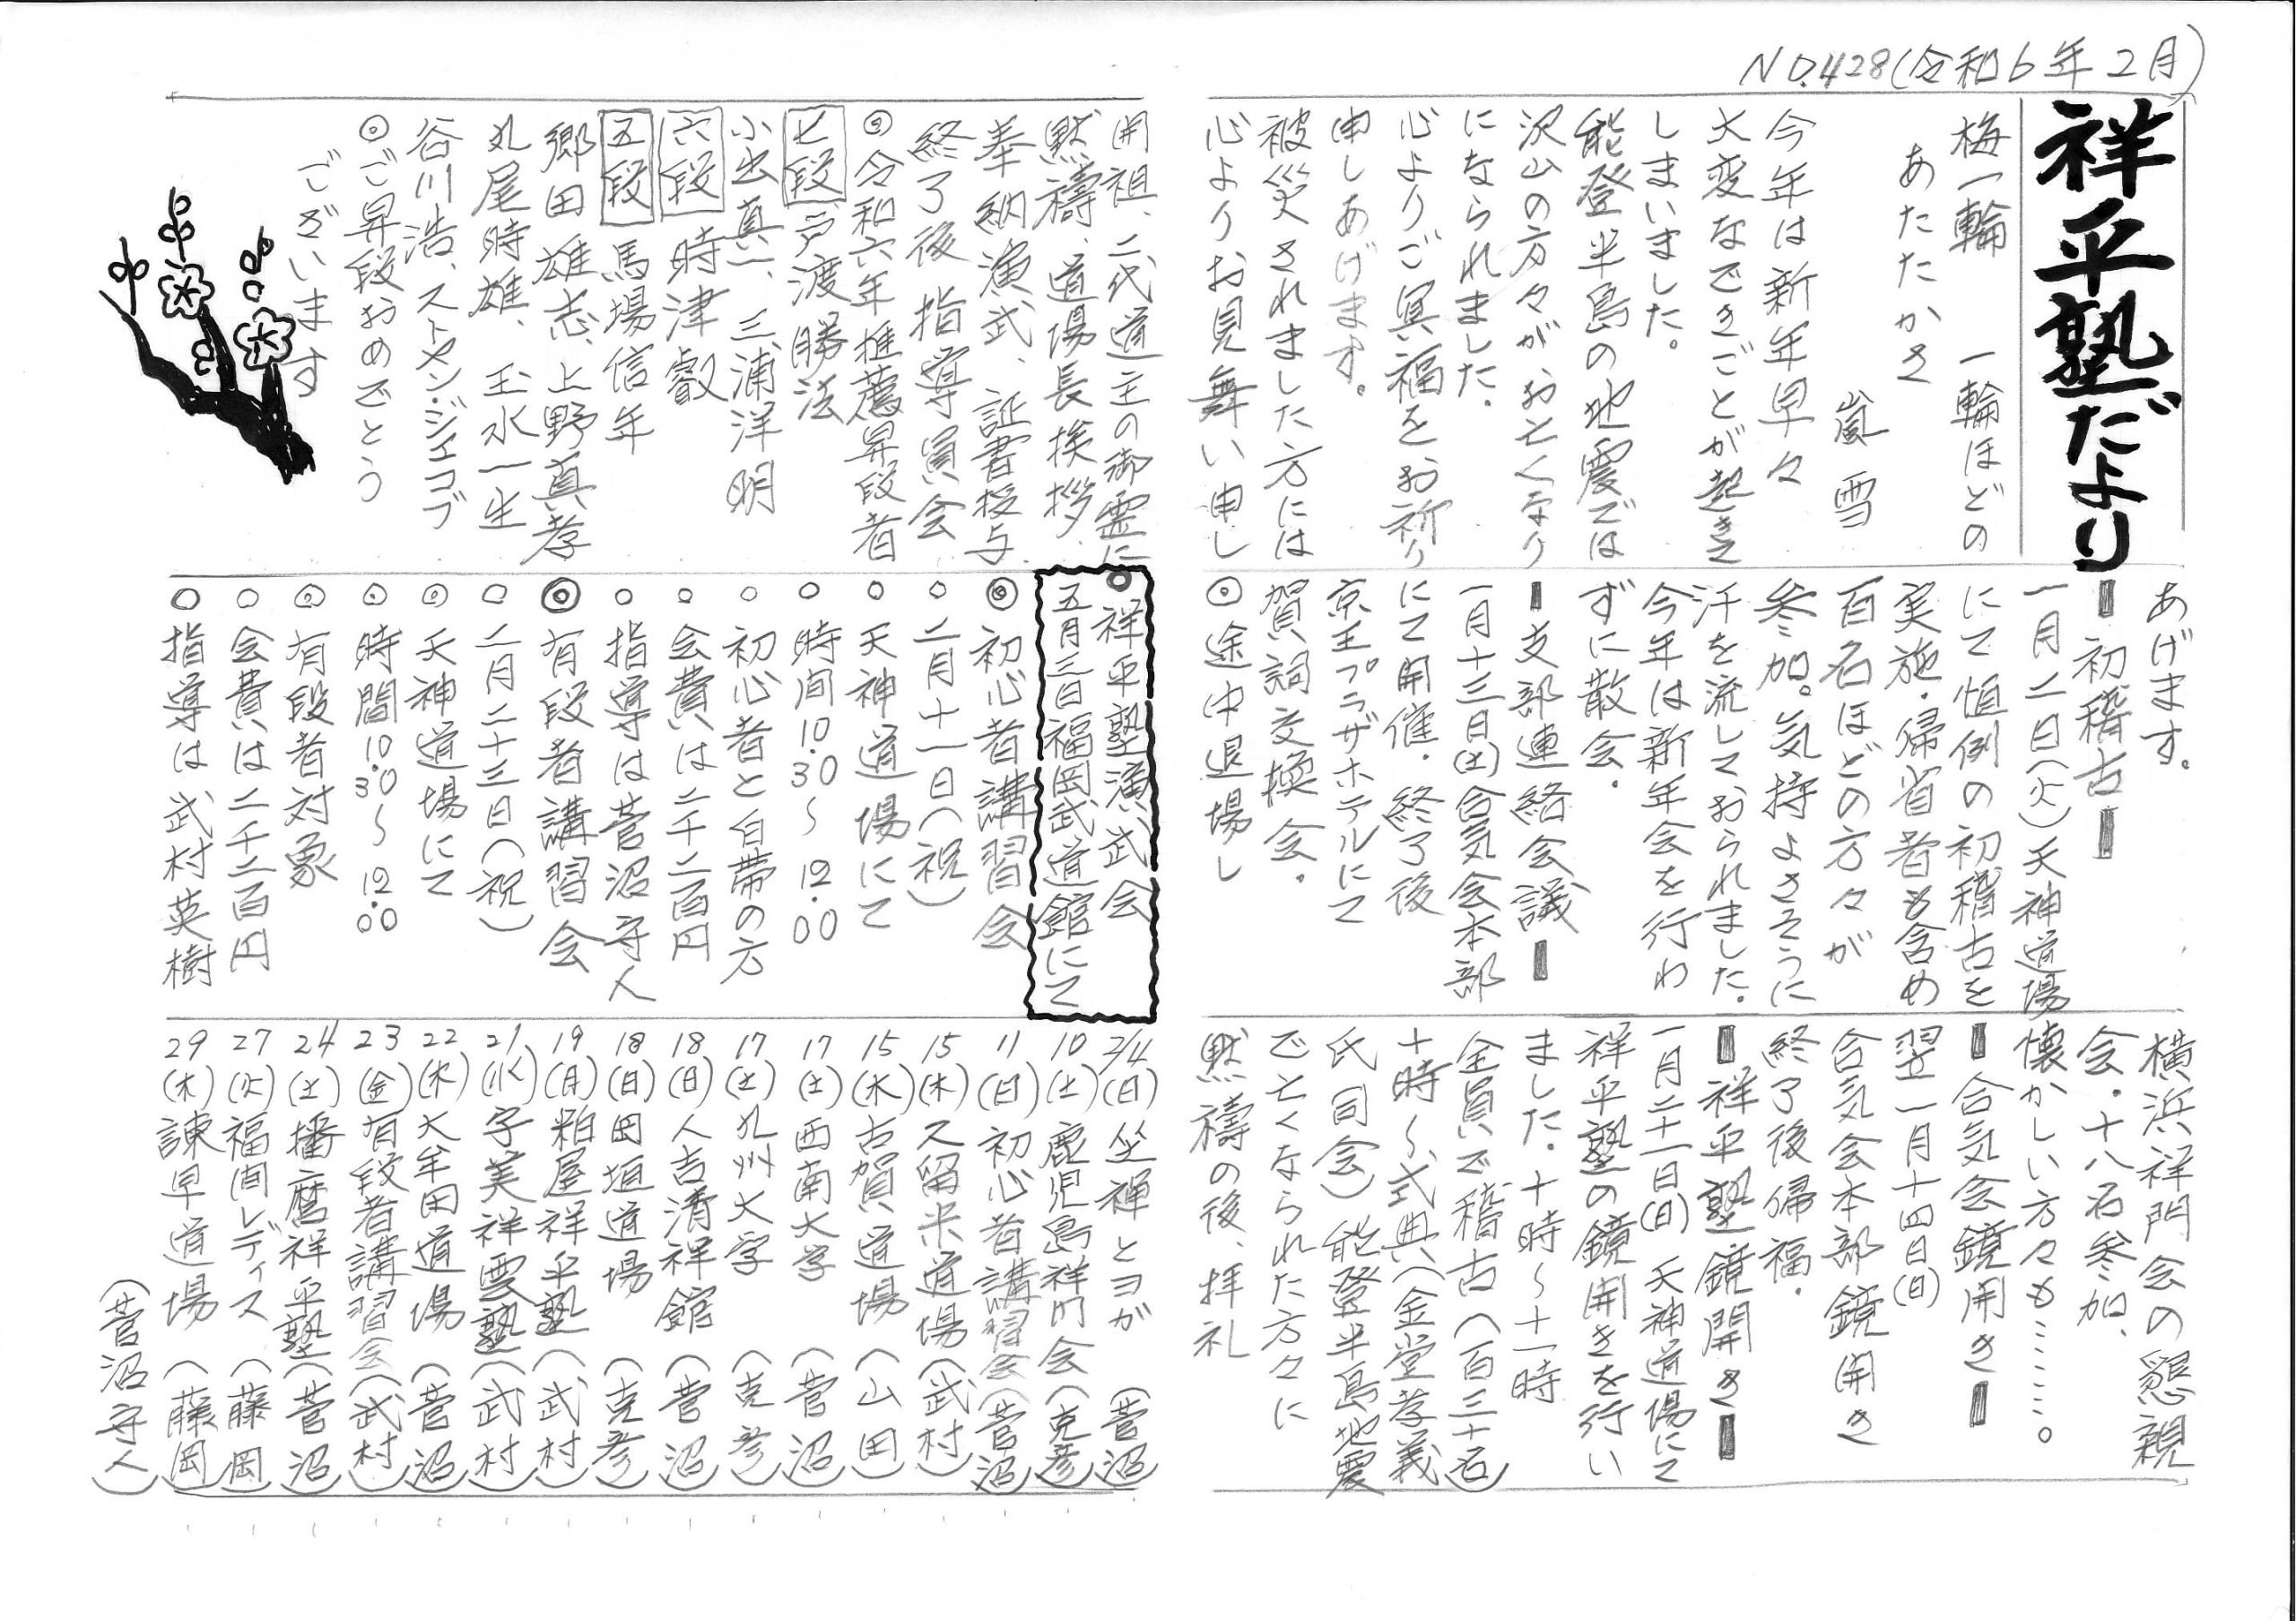 NO.428(令和6年2月)
祥平塾だより
梅一輪 一輪ほどの
あたたかさ
嵐雪
今年は新年早々
大変なできごとが起きて
しまいました。
能登半島の地震では
沢山の方々がお亡くなり
になられました。
心よりご冥福をお祈り
申しあげます。
被災されました方には
心よりお見舞い申し
あげます。
初稽古
一月二日(火)天神道場
にて恒例の初稽古を
実施・帰省者も含め
百名ほどの方々が
参加。気持よさそうに
汗を流しておられました。
今年は新年会を行わ
ずに散会・
支部連絡会議
一月十三日(土)合気会本部
にて開催・終了後
京王プラザホテルにて
賀詞交換会・
◎途中退場し
横浜祥門会の懇親
会・十八名参加、
懐かしい方々も……。
合気会鏡開き
翌一月十四日(日)
合気会本部鏡開き
終了後帰福・
祥平塾鏡開き
一月二十一日(日)天神道場にて
祥平塾の鏡開きを行い
ました・十時～十一時
全員で稽古(百三十名)
十時～式典(金堂孝義
氏司会)能登半島地震
で亡くなられた方々に
黙禱の後、拝礼
開祖、二代道主の御霊に
黙禱、道場長挨拶、
奉納演武、証書授与
終了後 指導員会
◎令和六年推薦昇段者
七段 戸渡勝法
小出真一、三浦洋明
六段 時津叡
五段 馬場信年
郷田雄志、上野真孝
丸尾時雄、玉水一生
谷川浩、ストヤン・ジェコブ
◎ご昇段おめでとう
ございます
◎祥平塾演武会
五月三日福岡武道館にて
◎初心者講習会
○二月十一日(祝)
○天神道場にて
○時間10.30～12.00
○初心者と白帯の方
○会費は二千二百円
○指導は菅沼守人
◎有段者講習会
○二月二十三日(祝)
◎天神道場にて
◎時間10.30～12.00
◎有段者対象
○会費は二千二百円
○指導は武村英樹
2/4(日)坐禅とヨガ(菅沼)
10(土)鹿児島祥門会(克彦)
11(日)初心者講習会(菅沼)
15(木)久留米道場(武村)
15(木)古賀道場(山田)
17(土)西南大学(菅沼)
17(土)九州大学(克彦)
18(日)人吉清祥館(菅沼)
18(日)田垣道場(克彦)
19(月)粕屋祥平塾(武村)
21(水)宇美祥雲塾(武村)
22(木)大牟田道場(菅沼)
23(金)有段者講習会(武村)
24(土)播磨祥平塾(菅沼)
27(火)福間レディス(藤岡)
29(木)諫早道場(藤岡)
(菅沼守人)